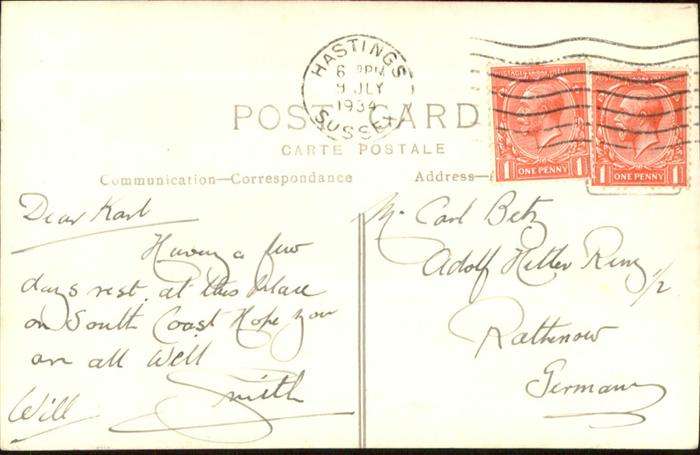 HASTINGS
6 PM
9 JLY
1934
SUSSEX
POST CARD
CARTE POSTALE
Communication—Correspondence
Address—
1 ONE PENNY 1
1 ONE PENNY 1
Dear Karl
Having a few
days rest at this place
on South Coast Hope you
are all Well
Will Smith
Mr Carl Betz
Adolf Hitler Ring 1/2
Rathenow
Germany